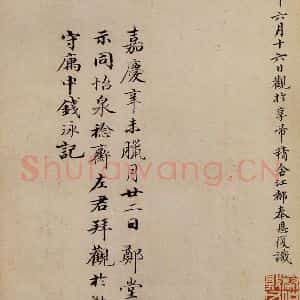 六月十六日觀於享帚精舍江都秦恩復識
嘉慶辛未臘月廿二日鄭堂
示同怡泉稔齋左君拜觀於
守廣中錢泳記
Shufawang.CN